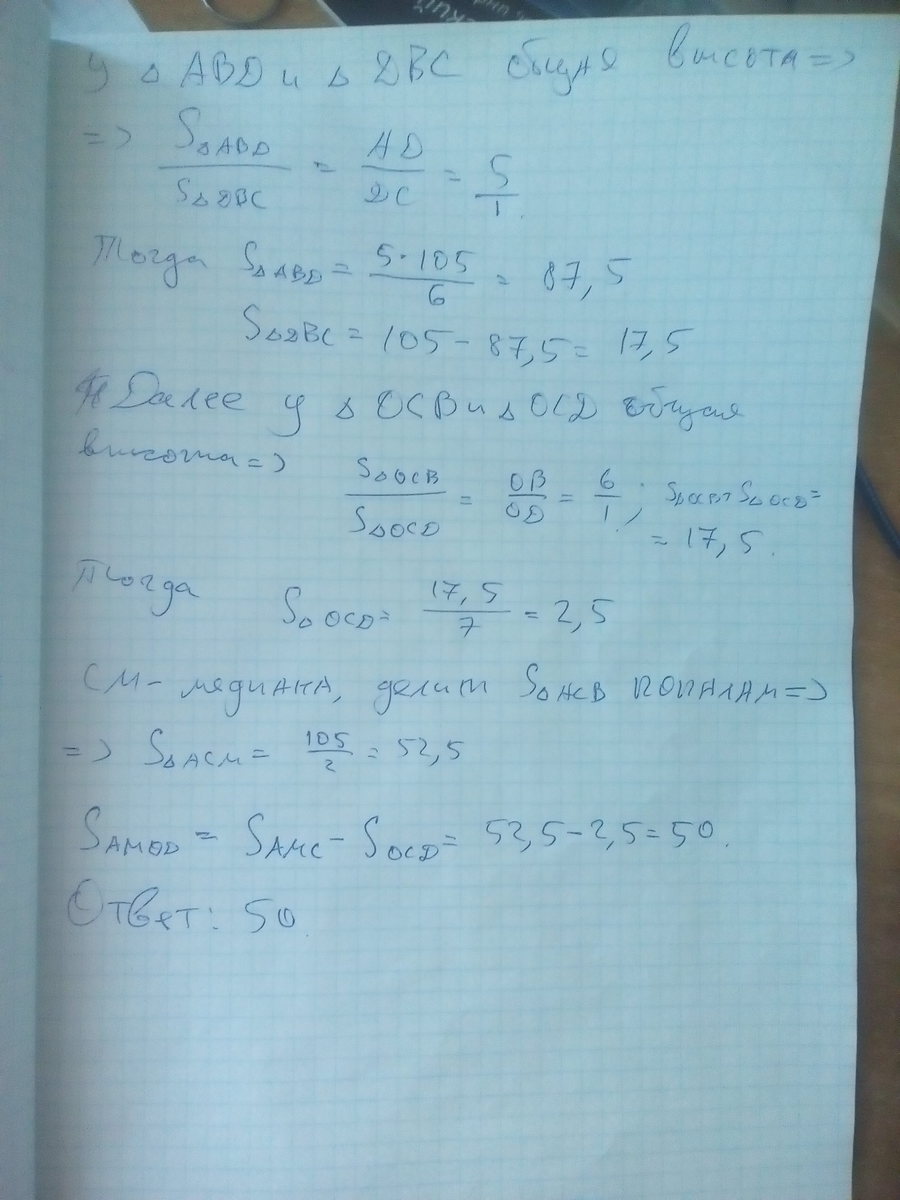 У △ ABD и △ DBC общая высота =>
=> S△ABD / S△DBC = AD / DC = 5 / 1.
Тогда S△ABD = 5·105 / 6 = 87,5
S△DBC = 105 - 87,5 = 17,5
Далее у △ OCB и △ OCD общая
высота => S△OCB / S△OCD = OB / OD = 6 / 1; S△OCB + S△OCD =
= 17,5.
Тогда S△OCD = 17,5 / 7 = 2,5
CM - медиана, делит S△ACB пополам =>
=> S△ACM = 105 / 2 = 52,5
SAMOD = SAMC - SOCD = 52,5 - 2,5 = 50.
Ответ: 50.